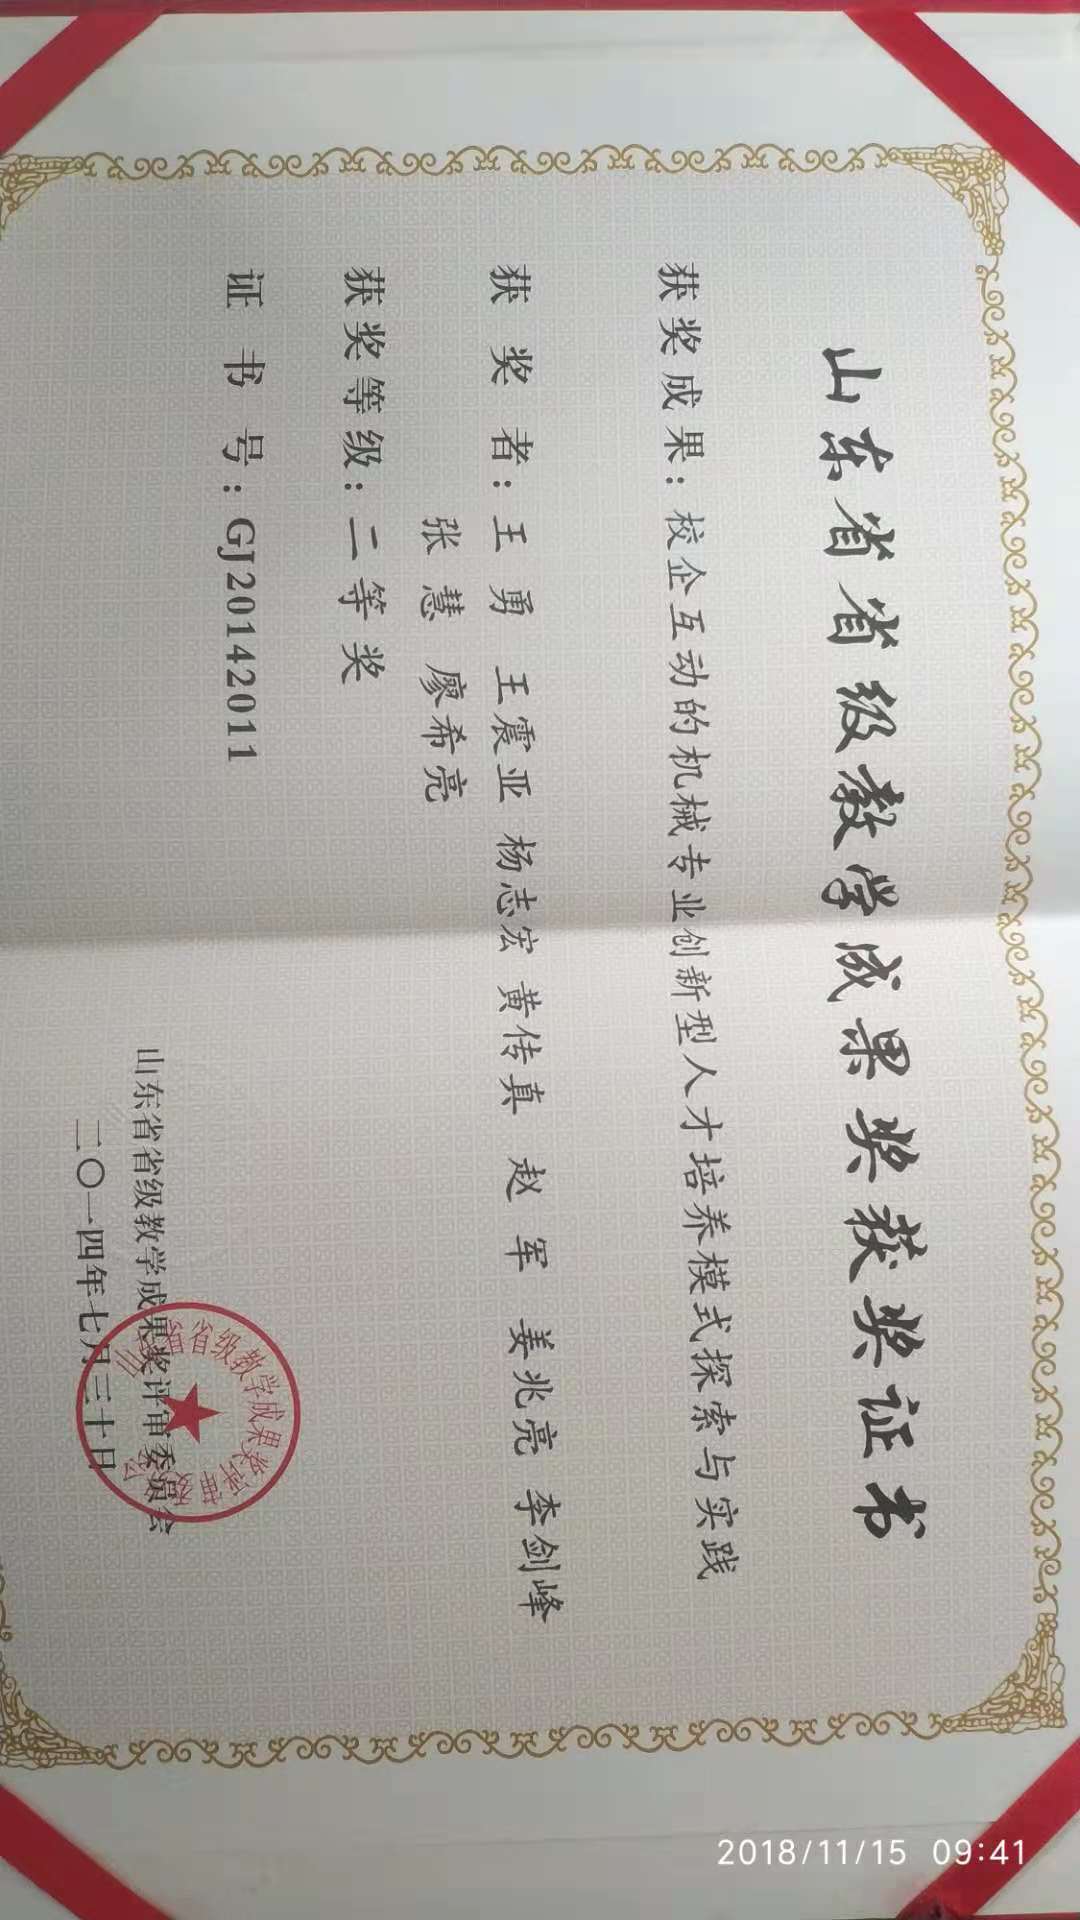 山东省省级教学成果奖获奖证书
获奖成果：校企互动的机械专业创新型人才培养模式探索与实践
获 奖 者：王 勇 王震亚 杨志宏 黄传真 赵 军 姜兆亮 李剑峰
张 慧 廖希亮
获奖等级：二等奖
证 书 号：GJ20142011
山东省省级教学成果奖评审委员会
二〇一四年七月三十日
山东省省级教学成果奖评审委员会
2018/11/15 09:41